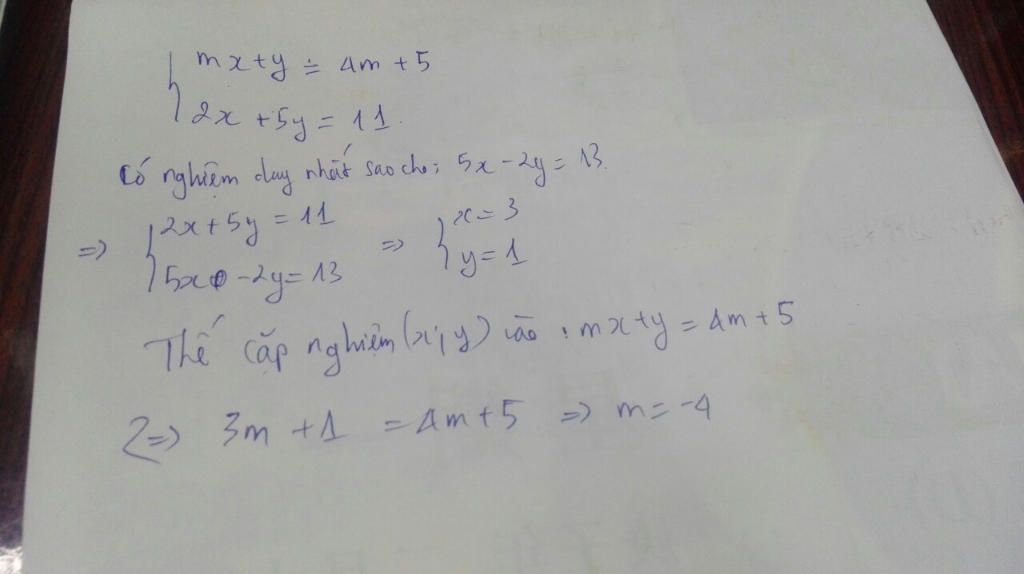 { mx+y = 4m+5
2x+5y = 11.
Có nghiệm duy nhất sao cho: 5x-2y = 13.
=> { 2x+5y = 11 => { x = 3
5x -2y = 13 y = 1
Thế cặp nghiệm (x; y) vào : mx+y = 4m+5
=> 3m+1 = 4m+5 => m = -4